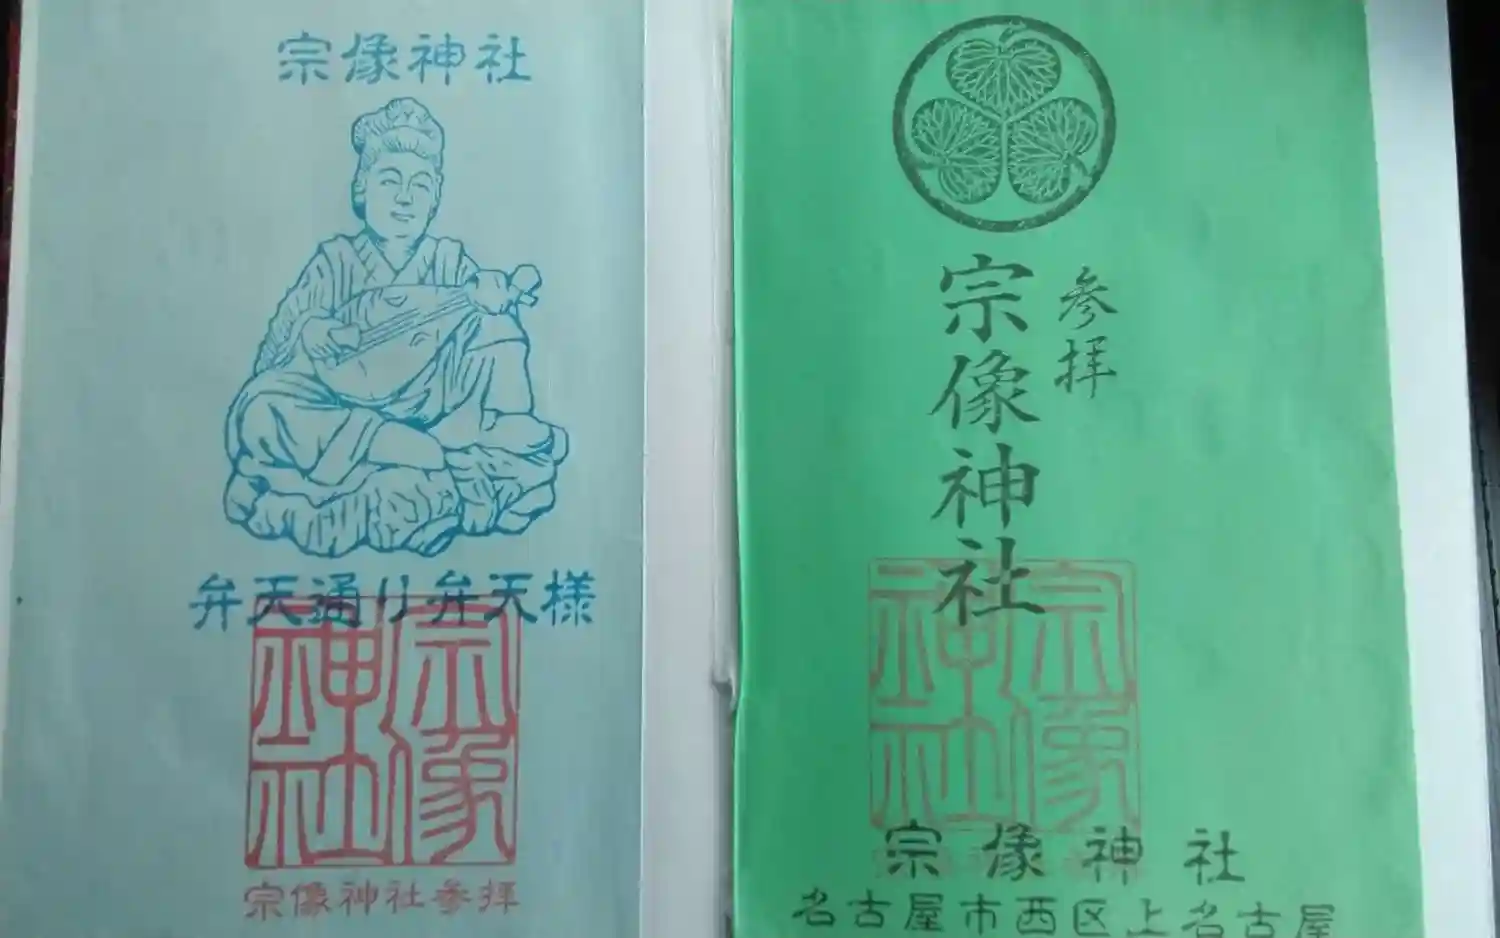 宗像神社
弁天通り弁天様
宗像神社
宗像神社参拝
参拝
宗像神社
宗像神社
宗像神社
名古屋市西区上名古屋